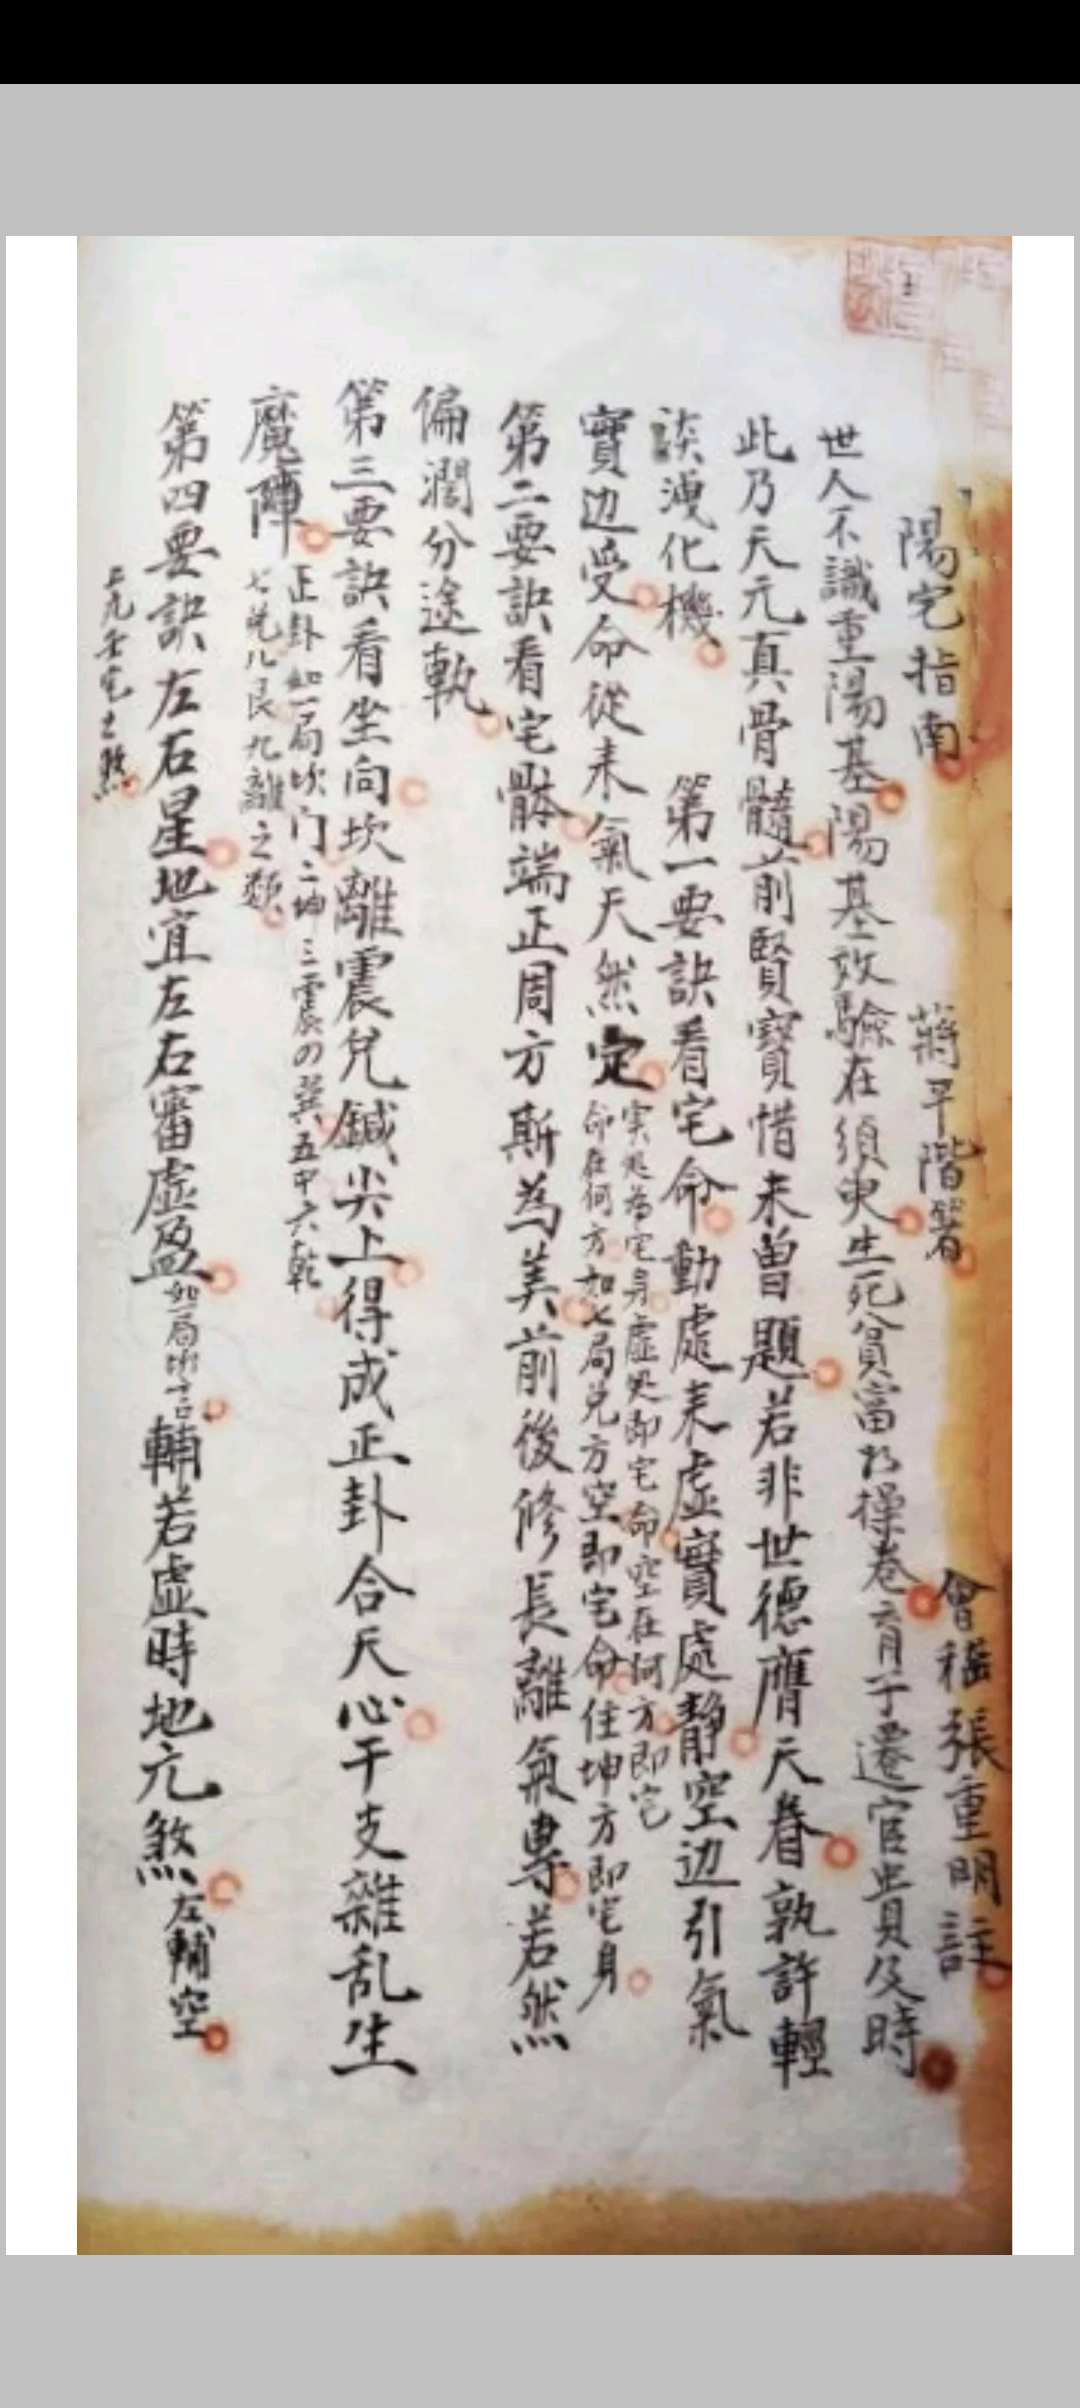 陽宅指南 蔣平階著 會稽張重明註
世人不識重陽基陽基效驗在須臾生死貧富權操卷六月子遷官貴貝及時
此乃天元真骨髓前賢寶惜未曾題若非世德膺天眷孰許輕
談洩化機 第一要訣看宅命動處来虛實處静空边引氣
實边受命從来氣天然定 实処為宅身虛処即宅命空在何方即宅
命在何方如七局兑方空即宅命住坤方即宅身
第二要訣看宅骵端正周方斯為美前後修長離氣専若然
偏濶分途執
第三要訣看坐向坎離震兑鍼尖上得成正卦合天心干支雜乱生
魔陣 正卦如一局坎门二坤三震の巽五中六乾
七兑八艮九離之類
第四要訣左右星地宜左右審虛盈 如一局 輔若虛時地元煞 左輔空